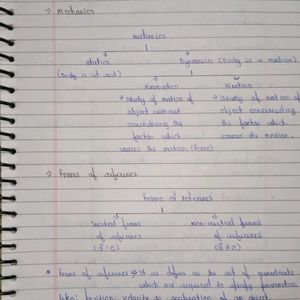 → Mechanics
mechanics
Statics
Dynamics (Body is in motion)
(Body is at rest)
Kinematics
Kinetics
→ Study of motion of
object without
considering the
factor which
causes the motion (force)
→ Study of motion of
object considering
the factor which
causes the motion.
→ Frame of reference
Frame of reference
Inertial frame
of reference
(a⃗ = 0)
Non-inertial frame
of reference
(a⃗ ≠ 0)
* Frame of reference → It is define as the set of coordinates
which are required to study parameters
like: Position, velocity & acceleration of an object